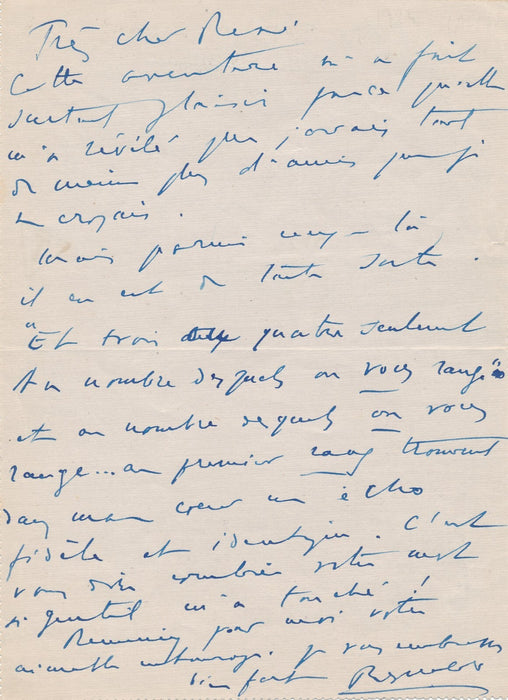 Très cher René
Cette aventure m'a fait
surtout plaisir parce qu'elle
m'a révélé que j'avais tout
de même plus d'amis que je
ne croyais.
Mais parmi ceux-là
il en est de toute sorte.
"Et trois quatre seulement
Au nombre desquels on vous range"
et au nombre desquels on vous
range... au premier rang trouvent
dans mon cœur un écho
fidèle et identique. C'est
vous dire combien votre mot
si gentil m'a touché!
Remerciez pour moi votre
aimable. Je vous embrasse
bien fort Reynaldo